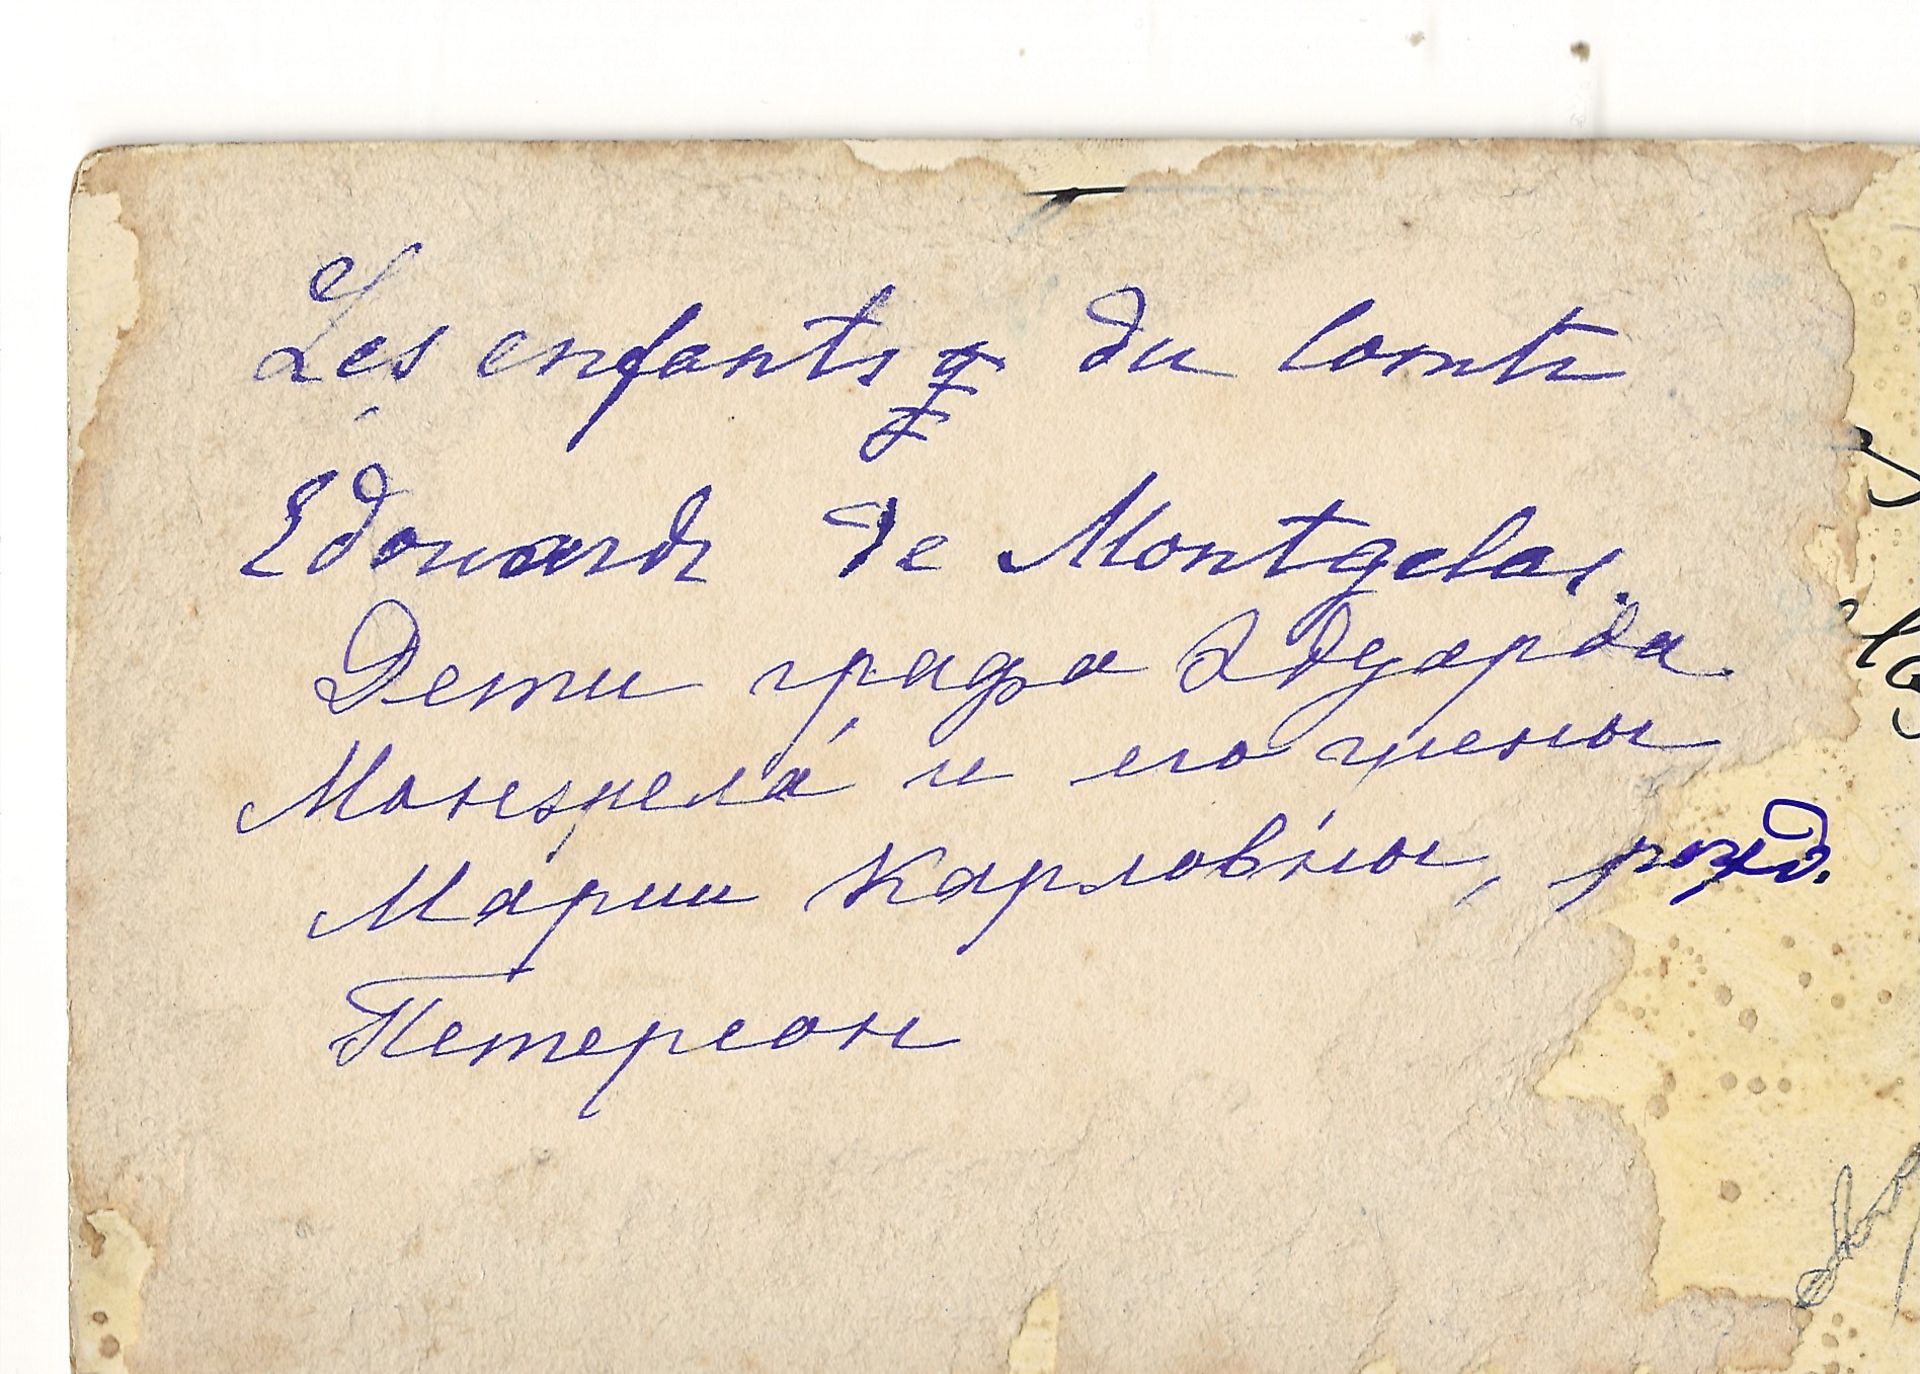 Les enfants du Comte
Edouarde de Montgelas.
Дети графа Эдуарда
Монжела́ и его жены
Марии Карловны, рожд.
Петерсон